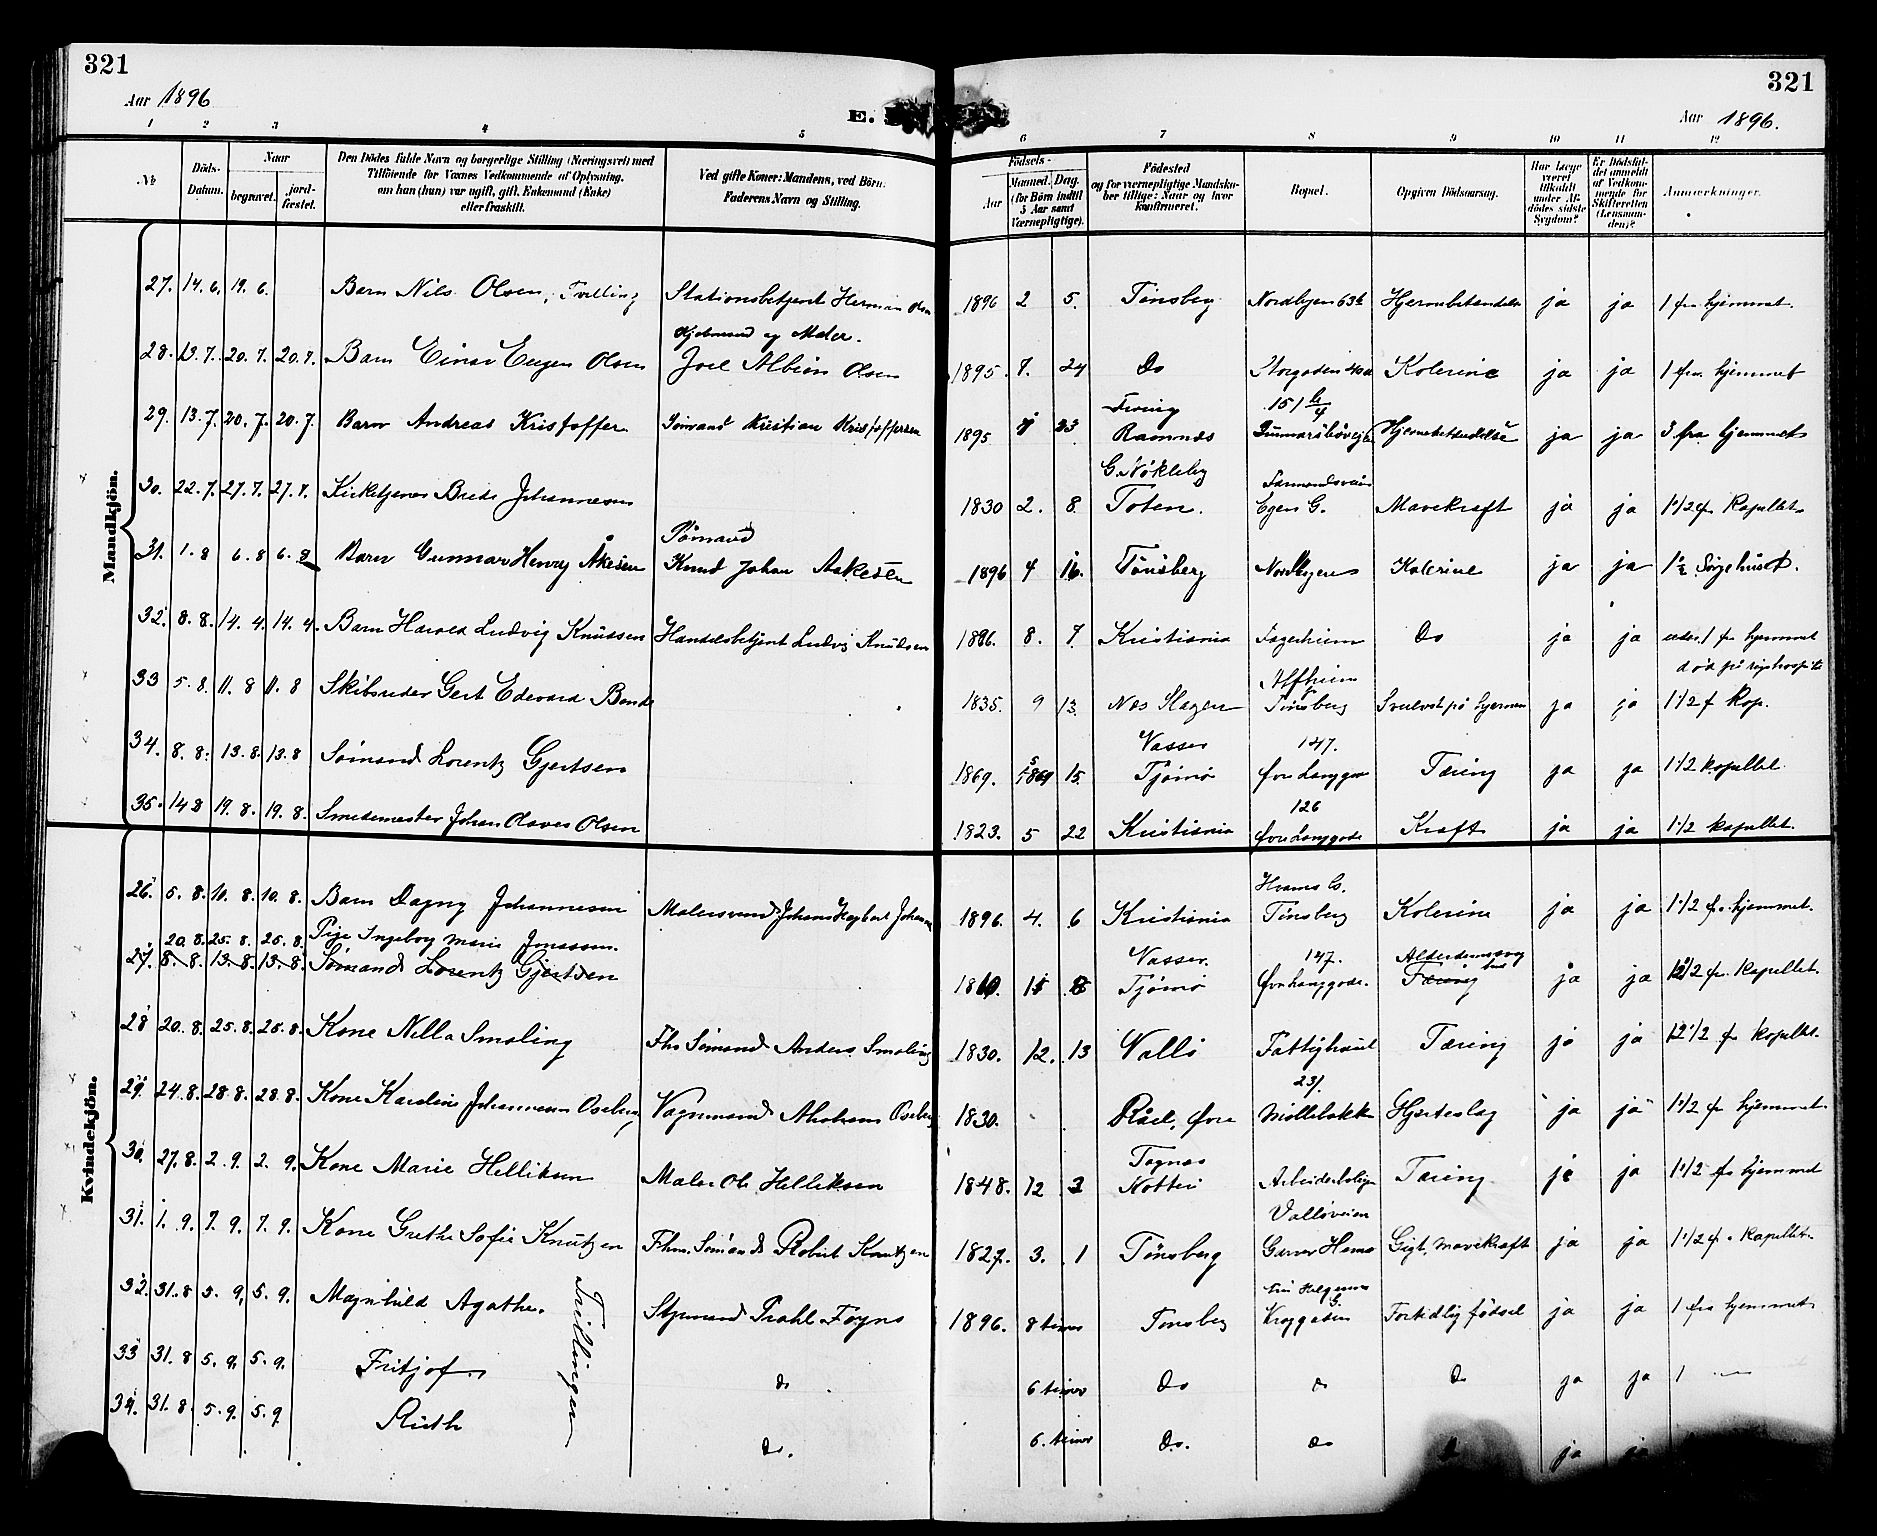 321
Aar 1896
E.
321
Aar 1896.
1 2 3 4 5 6 7 8 9 10 11 12
№
Döds-Datum.
Naar
begravet.
jord-fæstet.
Den Dödes fulde Navn og borgerlige Stilling (Næringsvei) med
Tilföiende for Voxnes Vedkommende af Oplysning,
om han (hun) var ugift, gift, Enkemand (Enke)
eller fraskilt.
Ved gifte Koner: Mandens, ved Börn:
Faderens Navn og Stilling.
Födsels-
Aar
Maaned. Dag.
(for Börn indtil 5 Aar samt Værnepligtige).
Födested
og for værnepligtige Mandskaber tillige: Naar og hvor konfirmeret.
Bopæl.
Opgiven Dödsaarsag.
Har Læge været tilkaldt under Afdödes sidste Sygdom?
Er Dödsfaldet anmeldt af Vedkommende for Skifteretten (Lensmanden)?
Anmærkninger.
Mandkjön.
27. 14. 6. 19. 6. Barn Nils Olsen, Tvilling Stationsbetjent Herman Olsen 1896 2 5. Tönsberg Nordbyen 63 b ja ja 1 fra hjemmet.
28. 13. 7. 20. 7. 20. 7. Barn Einar Eugen Olsen Joel Albion Olsen 1895. 7. 24 Do Storgaden 40a Kolerine ja ja 1 fra hjemmet
29. 13. 7. 20. 7. 20. 7. Barn Andreas Kristoffer Sömand Kristian Kristoffersen 1895 7 23 Ramnæs Hjernebetændelse ja ja 3 fra hjemmet
30. 22. 7. 27. 7. 27. 7. Kirketjener Brede Johannesen 1830 2. 8. Toten. Egen G. Mavekræft ja ja 1 1/2 fr Kapellet
31. 1. 8 6. 8 6. 8 Barn Gunnar Henry Åkesen Sömand Knud Johan Aakesen 1896 4 16. Tönsberg Nordbyen Kolerine ja ja 1 1/2 Sygehuset.
32. 8. 8. 14. 4. 14. 4. Barn Harald Ludvig Knutsen Handelsbetjent Ludvig Knudsen 1896. 8. 7. Kristiania Fagerheim Do ja ja 1 fr hjemmet
död på rigshospit
33 5. 8. 11. 8 11. 8 Skibsreder Gert Edevard Bonde 1835. 9 13. Næs Slagen Tönsberg ja ja 1 1/2 f Kap.
34. 8. 8. 13. 8. 13. 8 Sömand Lorentz Gjertsen 1869. 15 Vasser Tjömö 147. Övre Langgade Tæring ja ja 1 1/2 kapellet
35. 14 8 19. 8. 19. 8. Smedemester Johan Olaves Olsen 1823. 5 22 Kristiania 126 Övre Langgade Kræft ja ja 1 1/2 kapellet.
Kvindekjön.
26. 5. 8. 10. 8. 10. 8. Barn Dagny Johannesen 1896. 4. 6 Kristiania Tönsberg Kolerine ja ja 1 1/2 fr hjemmet.
20. 8. 25. 8. 25. 8. Pige Ingeborg Marie Jonassen
27. 8. 8. 13. 8. 13. 8. Sömand Lorentz Gjertsen Vasser. Tjömö 147. Övre Langgade. Tæring ja ja 1 1/2 fr. Kapellet.
28 20. 8. 25. 8. 25. 8. Kone Nilla Smaling Fhv Sömand Anders Smaling 1830. 12. 13 Vallö Fattighuset Tæring ja ja 1 1/2 fr kapellet.
29. 24. 8. 28. 8. 28. 8. Kone Karoline Johannesen Oseberg Vognmand Abraham Oseberg 1830. Råel, Övre 231. Möllebakken Hjerteslag ja ja 1 1/2 fr hjemmet
30. 27. 8. 2. 9. 2. 9. Kone Marie Helliksen Maler Ole Helliksen 1848. 12 3 Nötterö Arbeiderbolig Tæring ja ja 1 1/2 fr hjemmet
31. 1. 9. 7. 9. 7. 9. Kone Grethe Sofie Knutzen Fhv. Sömand Robert Knutzen 1827. 3. 1 Tönsberg Vallöveien Gigt, Mavekræft ja ja 1 1/2 fr kapellet
32. 31. 8 5. 9. 5. 9. Magnhild Agathe. Styrmand Prahl Foyns 1896. 8 timer Tönsberg Fortidlig födsel ja ja 1 fra hjemmet
Trillinger
33 31. 8 5. 9. 5. 9. Fritjof. do 6 timer Do do Do ja ja 1
34. 31. 8. 5. 9. 5. 9 Ruth Do. 6. timer Do. do ja ja